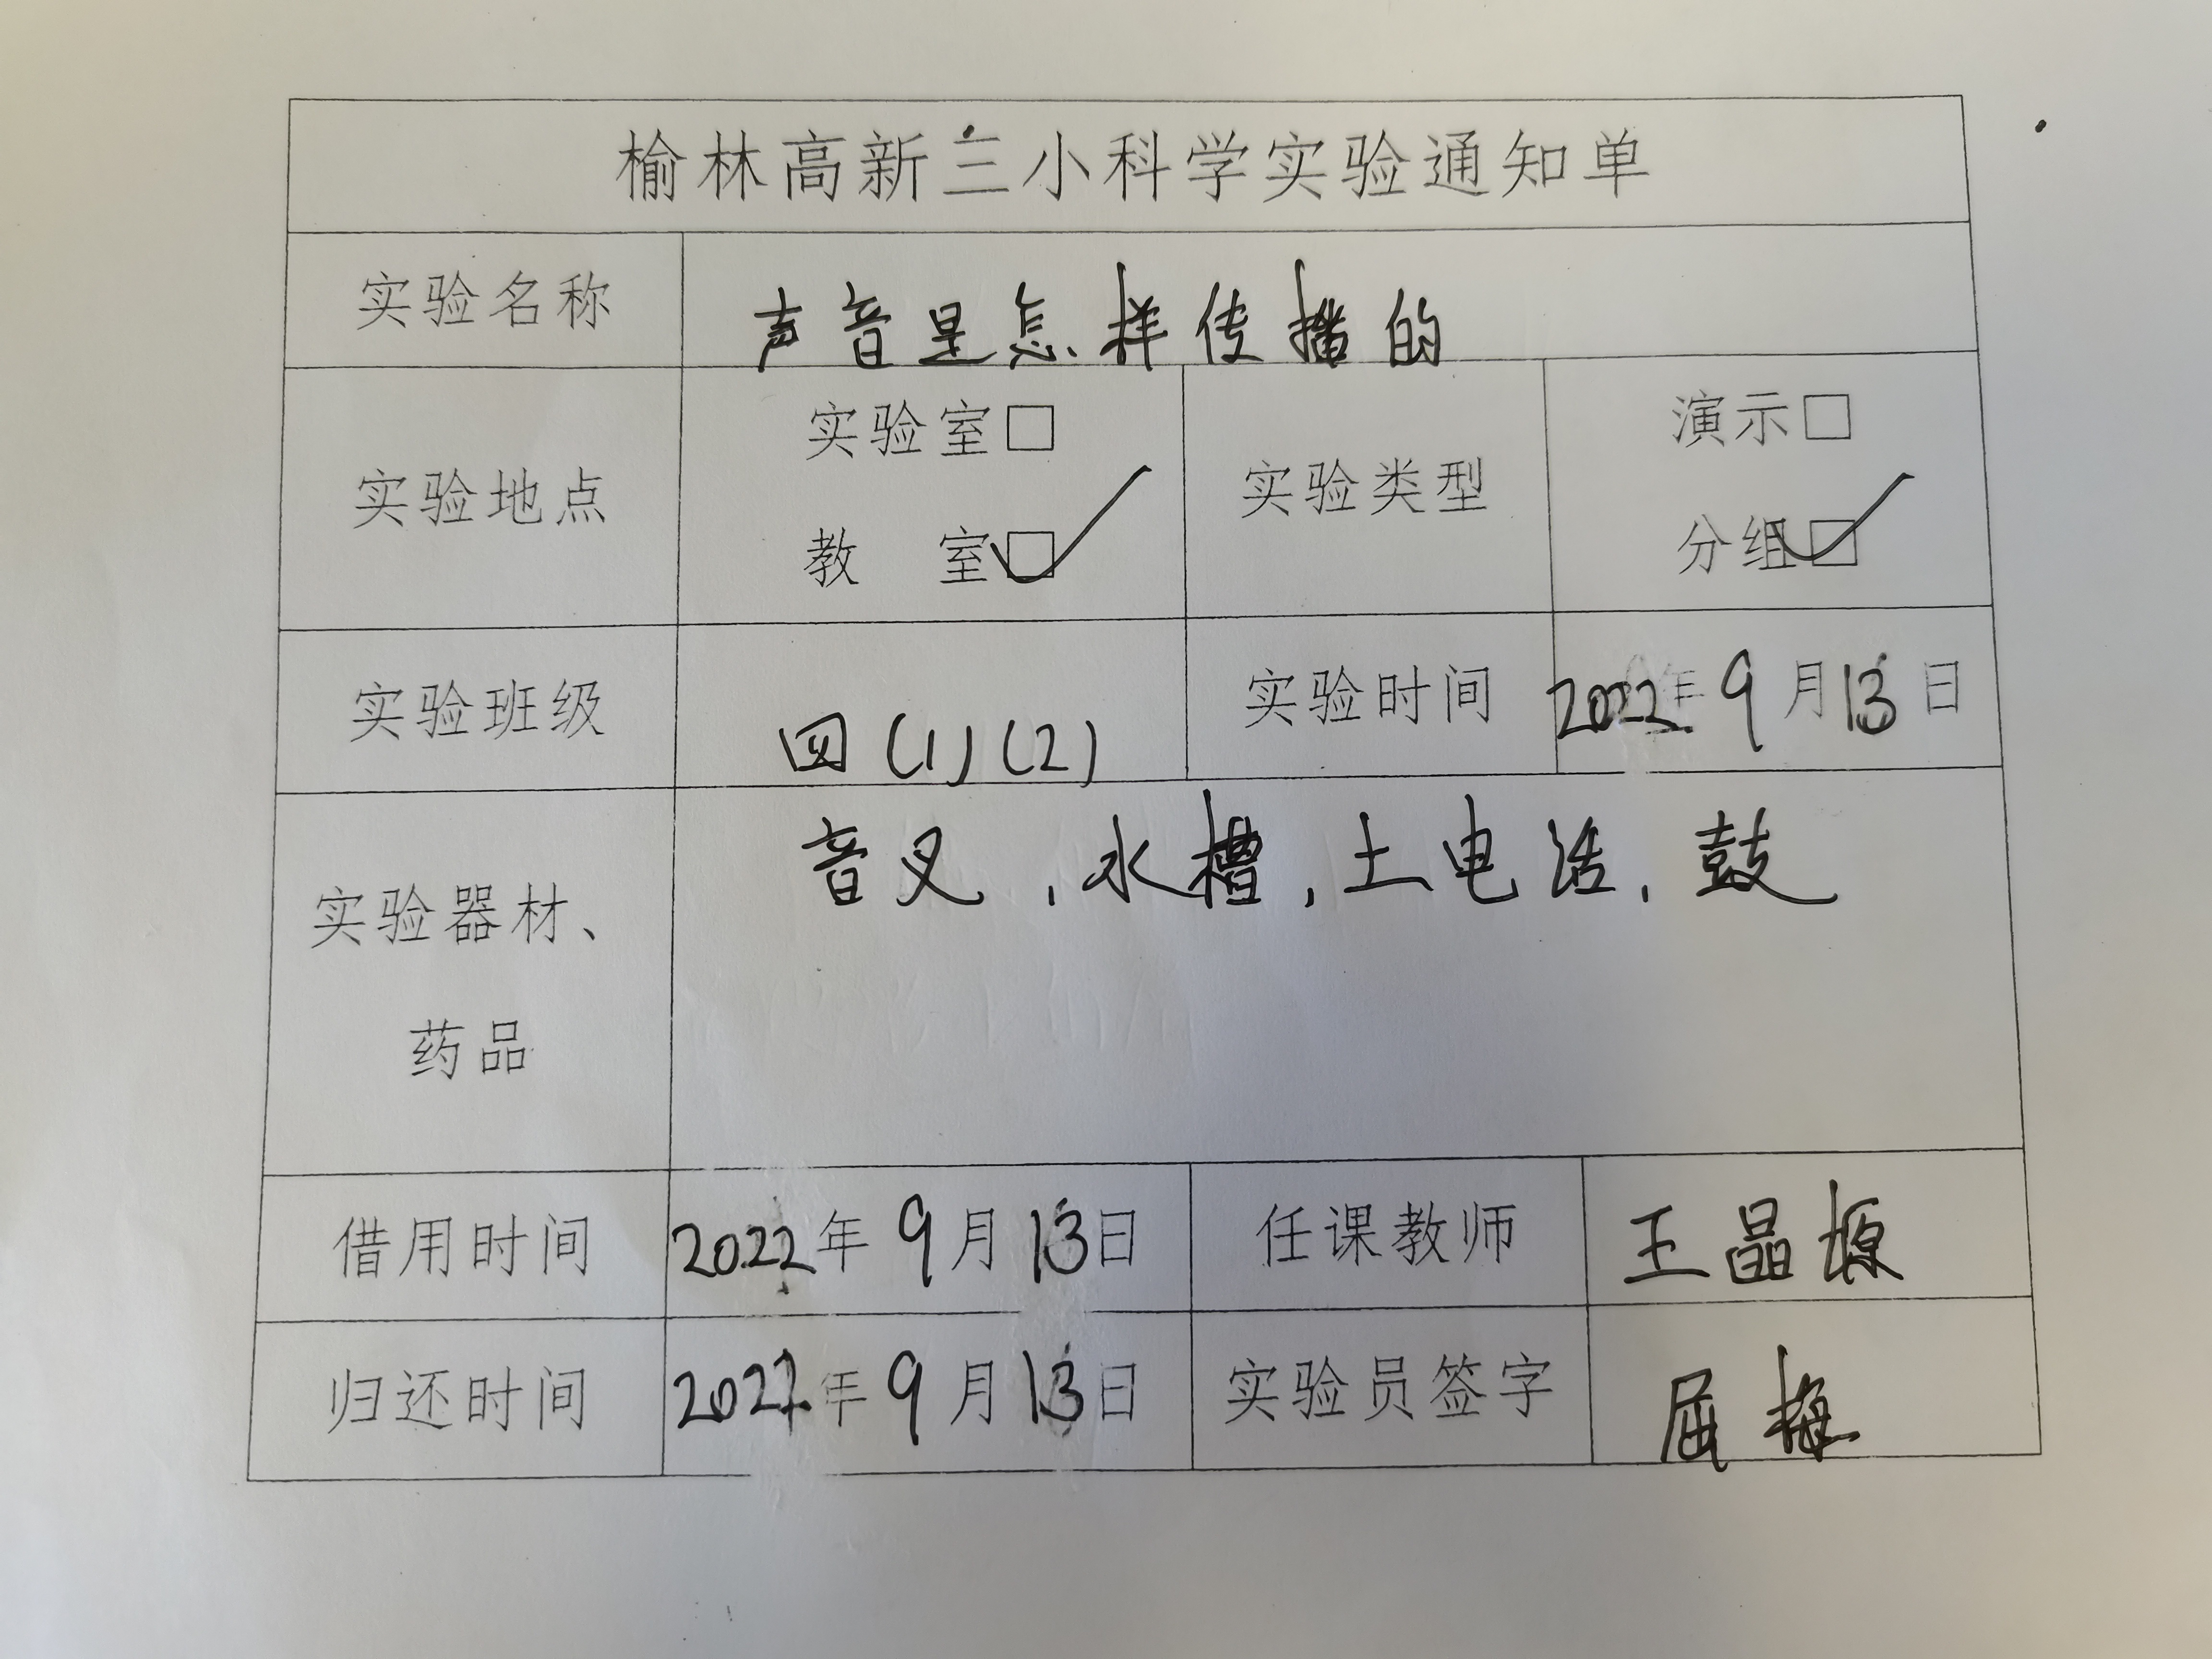 榆林高新三小科学实验通知单
实验名称 声音是怎样传播的
实验地点 实验室□ 教 室☑ 实验类型 演示□ 分组☑
实验班级 四(1)(2) 实验时间 2022年9月13日
实验器材、药品 音叉,水槽,土电话,鼓
借用时间 2022年9月13日 任课教师 王晶塬
归还时间 2022年9月13日 实验员签字 屈梅